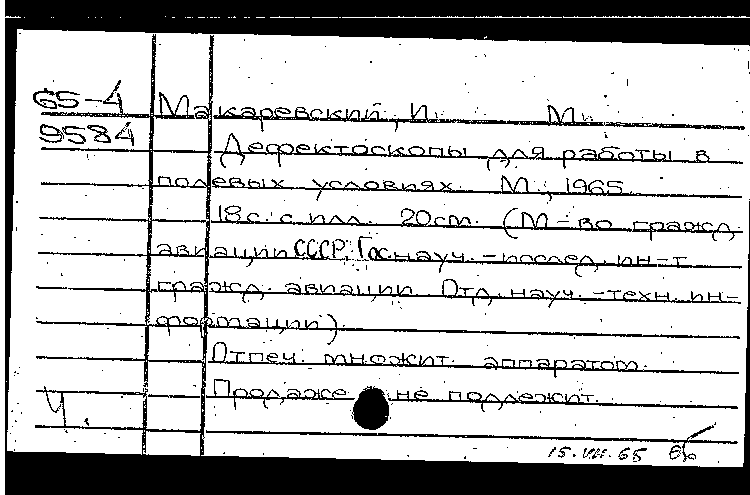 65-4 Макаревский, И. М.
9584 Дефектоскопы для работы в
полевых условиях. М., 1965.
18с. с илл. 20см. (М-во гражд.
авиации СССР. Гос.науч.-исслед. ин-т
гражд. авиации. Отд. науч.-техн. ин-
формации).
Отпеч. множит. аппаратом.
Продаже не подлежит.
Ч.
15.VII.65